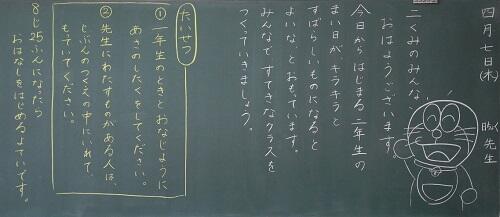 四月七日(木)
二くみのみんな、
おはようございます。
今日からはじまる二年生の
まい日が、キラキラと
すばらしいものになると
よいな、とおもっています。
みんなですてきなクラスを
つくっていきましょう。
たいせつ
①一年生のときとおなじように
あさのしたくをしてください。
②先生にわたすものがある人は、
じぶんのつくえの中にいれて、
もっていてください。
8じ25ふんになったら
おはなしをはじめるよていです。
先生